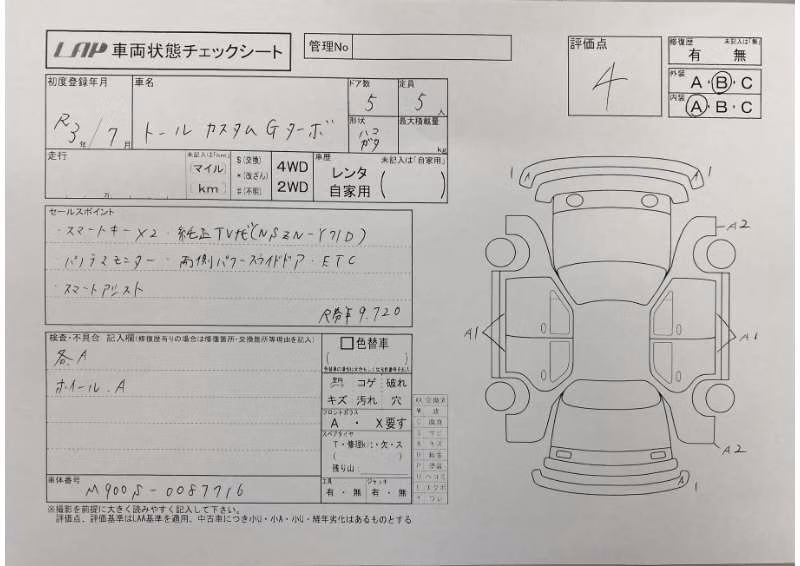 LAP 車両状態チェックシート
管理No
評価点
4
修復歴 未記入は「無」
有 無
外装 A・B・C
内装 A・B・C
初度登録年月
R3年/7月
車名
トール カスタムGターボ
ドア数
5
定員
5人
形状
ハコ
ガタ
最大積載量
kg
走行
万
未記入は「km」
(マイル)
km
$(交換)
*(改ざん)
#(不明)
4WD
2WD
車歴 未記入は「自家用」
レンタ
自家用
セールスポイント
・スマートキーX2・純正TVナビ(NSZN-Y71D)
パノラマモニター・両側パワースライドドア・ETC
スマートアシスト
R券¥9.720
検査・不具合 記入欄(修復歴有りの場合は修復箇所・交換箇所等現由を記入)
各A
ホイール.A
色替車
コゲ 破れ
キズ 汚れ 穴
フロントガラス
A ・ X要す
スペアタイヤ
残り山
工具
有・無
ジャッキ
有・無
車体番号
M900S-0087716
※撮影を前提に大きく読みやすく記入して下さい。
評価点、評価基準はLAA基準を適用、中古車につき小U・小A・小U・経年劣化はあるものとする
1
1
A2
A1
A1
A2
1